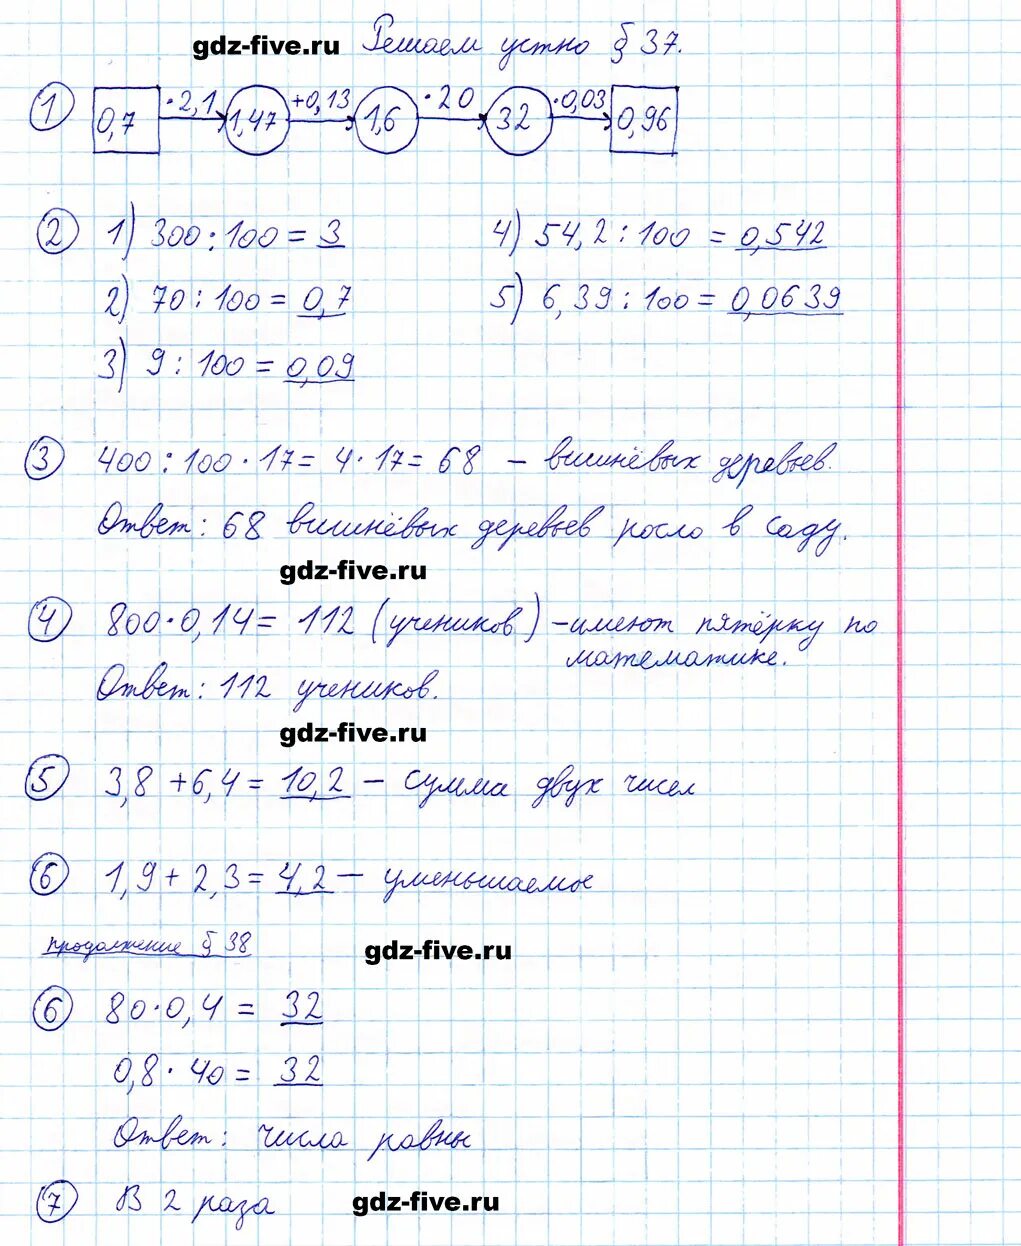 gdz-five.ru Решаем устно § 37.
1 0,7 ·2,1 1,47 +0,13 1,6 ·20 32 ·0,03 0,96
2 1) 300 : 100 = 3 4) 54,2 : 100 = 0,542
2) 70 : 100 = 0,7 5) 6,39 : 100 = 0,0639
3) 9 : 100 = 0,09
3 400 : 100 · 17 = 4 · 17 = 68 – вишнёвых деревьев.
Ответ: 68 вишнёвых деревьев росло в саду.
gdz-five.ru
4 800 · 0,14 = 112 (учеников) – имеют пятёрку по
математике.
Ответ: 112 учеников.
gdz-five.ru
5 3,8 + 6,4 = 10,2 – сумма двух чисел
6 1,9 + 2,3 = 4,2 – уменьшаемое
продолжение § 38 gdz-five.ru
6 80 · 0,4 = 32
0,8 · 40 = 32
Ответ: числа равны
7 В 2 раза gdz-five.ru